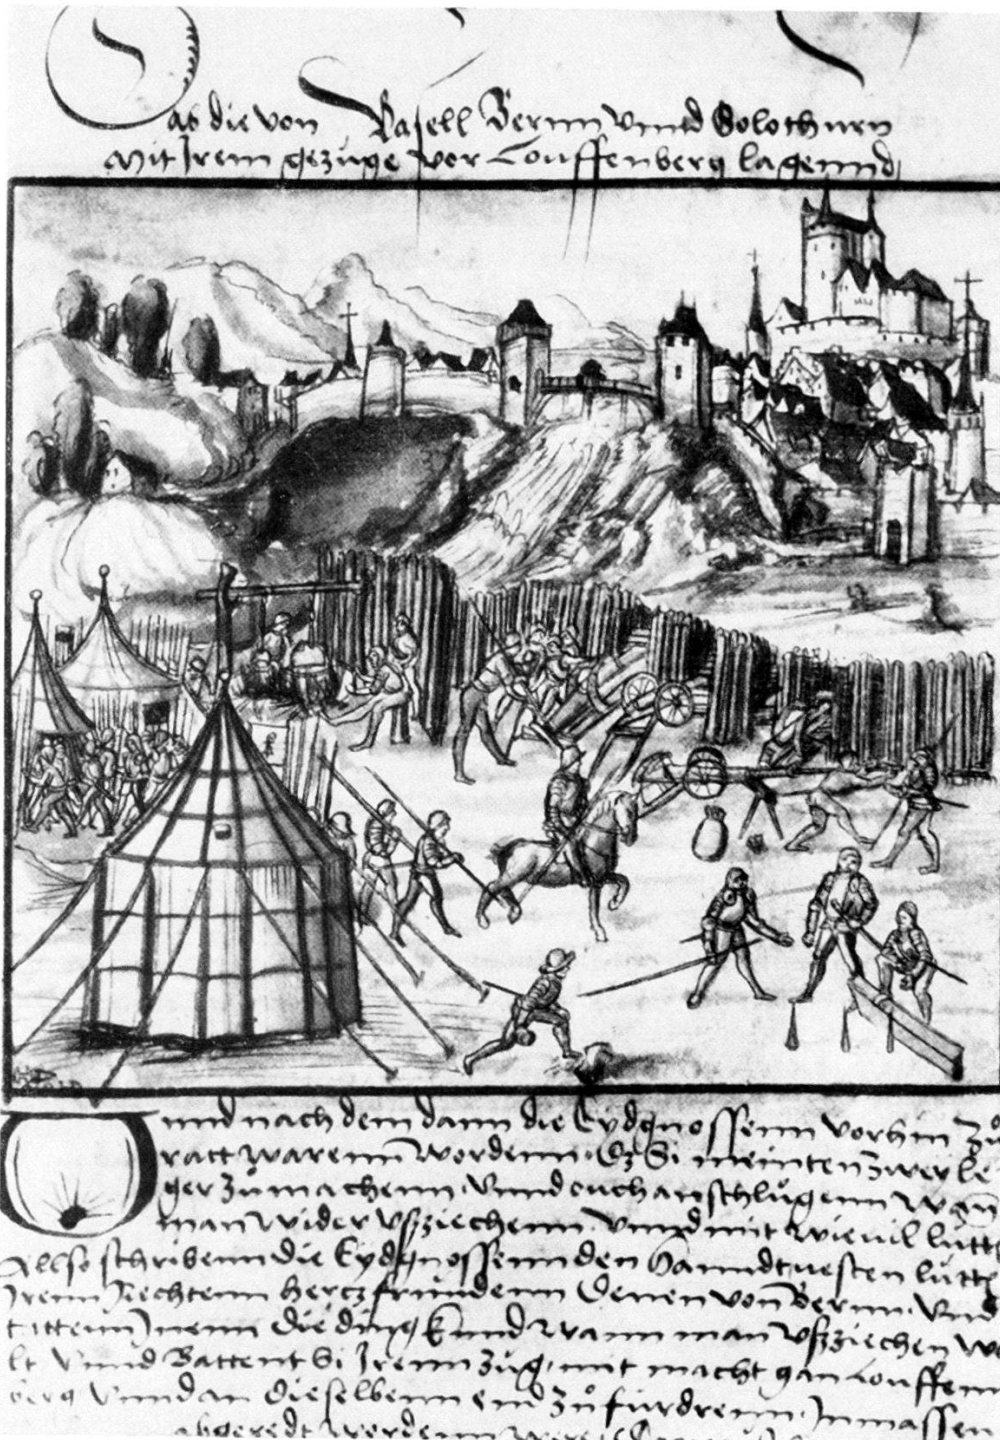 Das die von Basell Bernn vnnd Solothurn
mit Irem gezüge vor Louffenberg lagennd
Unnd nach dem dann die Eydgnossenn vorhin zů
ratt warenn wordenn Das Si meinten zwey le
ger zů machenn vnnd ouch anschlůgenn wan
man wider vßziechenn vnnd mit wieuil lütte
Allso schribenn die Eydgnossenn den vesten lütte
Irenn hertzfründenn Denen von Bernn vnd
Inenn die ding kund wann man vßziechen wo
lt vnnd Battent Si Irenn zůg mit macht gan Louffenn
berg vnnd an dieselbenn end zů fürdrenn Inmassen
abgeredt wordenn were